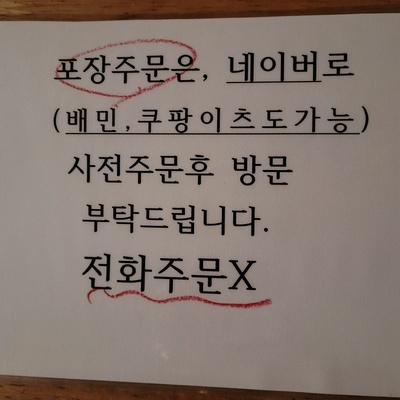 포장주문은, 네이버로
(배민,쿠팡이츠도가능)
사전주문후 방문
부탁드립니다.
전화주문X